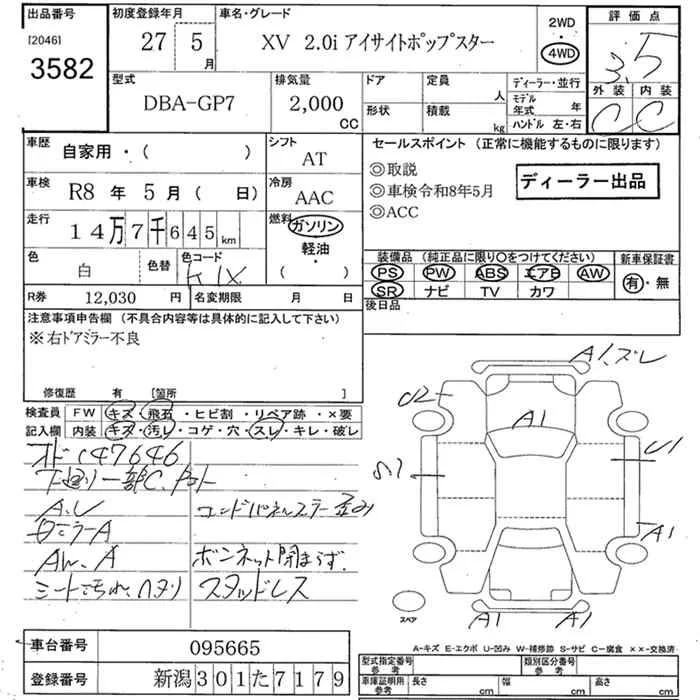 出品番号
[2046]
3582
初度登録年月
27 5
月
車名・グレード
XV 2.0i アイサイトポップスター
2WD
・
4WD
評価点
3.5
外装 内装
C C
型式
DBA-GP7
排気量
2,000
CC
ドア
形状
定員
人
積載
kg
ディーラー・並行
モデル
年式 年
ハンドル 左・右
車歴
自家用・( )
シフト
AT
車検
R8 年 5 月 ( 日)
冷房
AAC
走行
14万7千645km
燃料
ガソリン
軽油・
( )
色
白
色替
色コード
K1X
R券 12,030 円
名変期限 月 日
セールスポイント (正常に機能するものに限ります)
◎取説
◎車検令和8年5月
◎ACC
ディーラー出品
装備品 (純正品に限り○をつけてください)
PS PW ABS エアB AW
SR ナビ TV カワ
新車保証書
有・無
後日品
注意事項申告欄 (不具合内容等は具体的に記入して下さい)
※右ドアミラー不良
修復歴 有 [箇所 ]
検査員
記入欄
FW キズ・飛石・ヒビ割・リペア跡・×要
内装 キズ・汚レ・コゲ・穴・スレ・キレ・破レ
オド 147646
下廻り一部C、
A.U
コンドパネルステー歪み
ミラーA
AW、A
ボンネット閉まらず
シート汚れ、ヘタリ
スタッドレス
A1.ズレ
U2
A1
U1
S1
A1
A1
A1
スペア
A-キズ E-エクボ U-凹み W-補修跡 S-サビ C-腐食 ××-交換済
車台番号 095665
登録番号 新潟301た7179
型式指定番号
参考
類別区分番号
参考
車庫証明用
参考
長さ cm
幅 cm
高さ cm